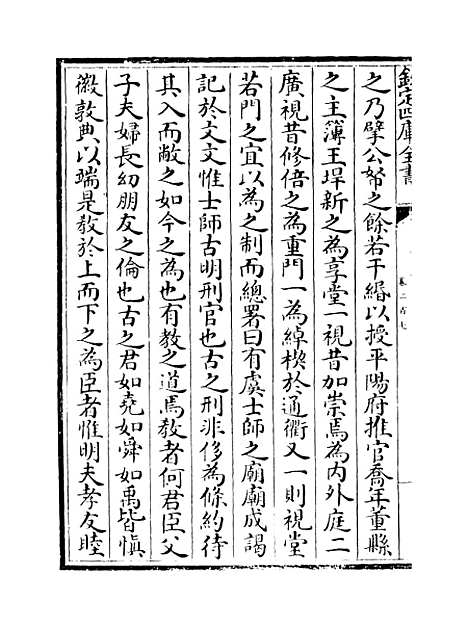 欽定四庫全書
卷二百七
之乃擘公帑之餘若干緡以授平陽府推官喬年董縣
之主簿王垾新之為享堂一視昔加崇焉為内外庭二
廣視昔修倍之為重門一為綽楔於通衢又一則視堂
若門之宜以為之制而總署曰有虞士師之廟廟成謁
記於文文惟士師古明刑官也古之刑非侈為條約待
其入而敝之如今之為也有教之道焉教者何君臣父
子夫婦長幼朋友之倫也古之君如堯如舜如禹皆慎
徽敦典以端是教於上而下之為臣者惟明夫孝友睦